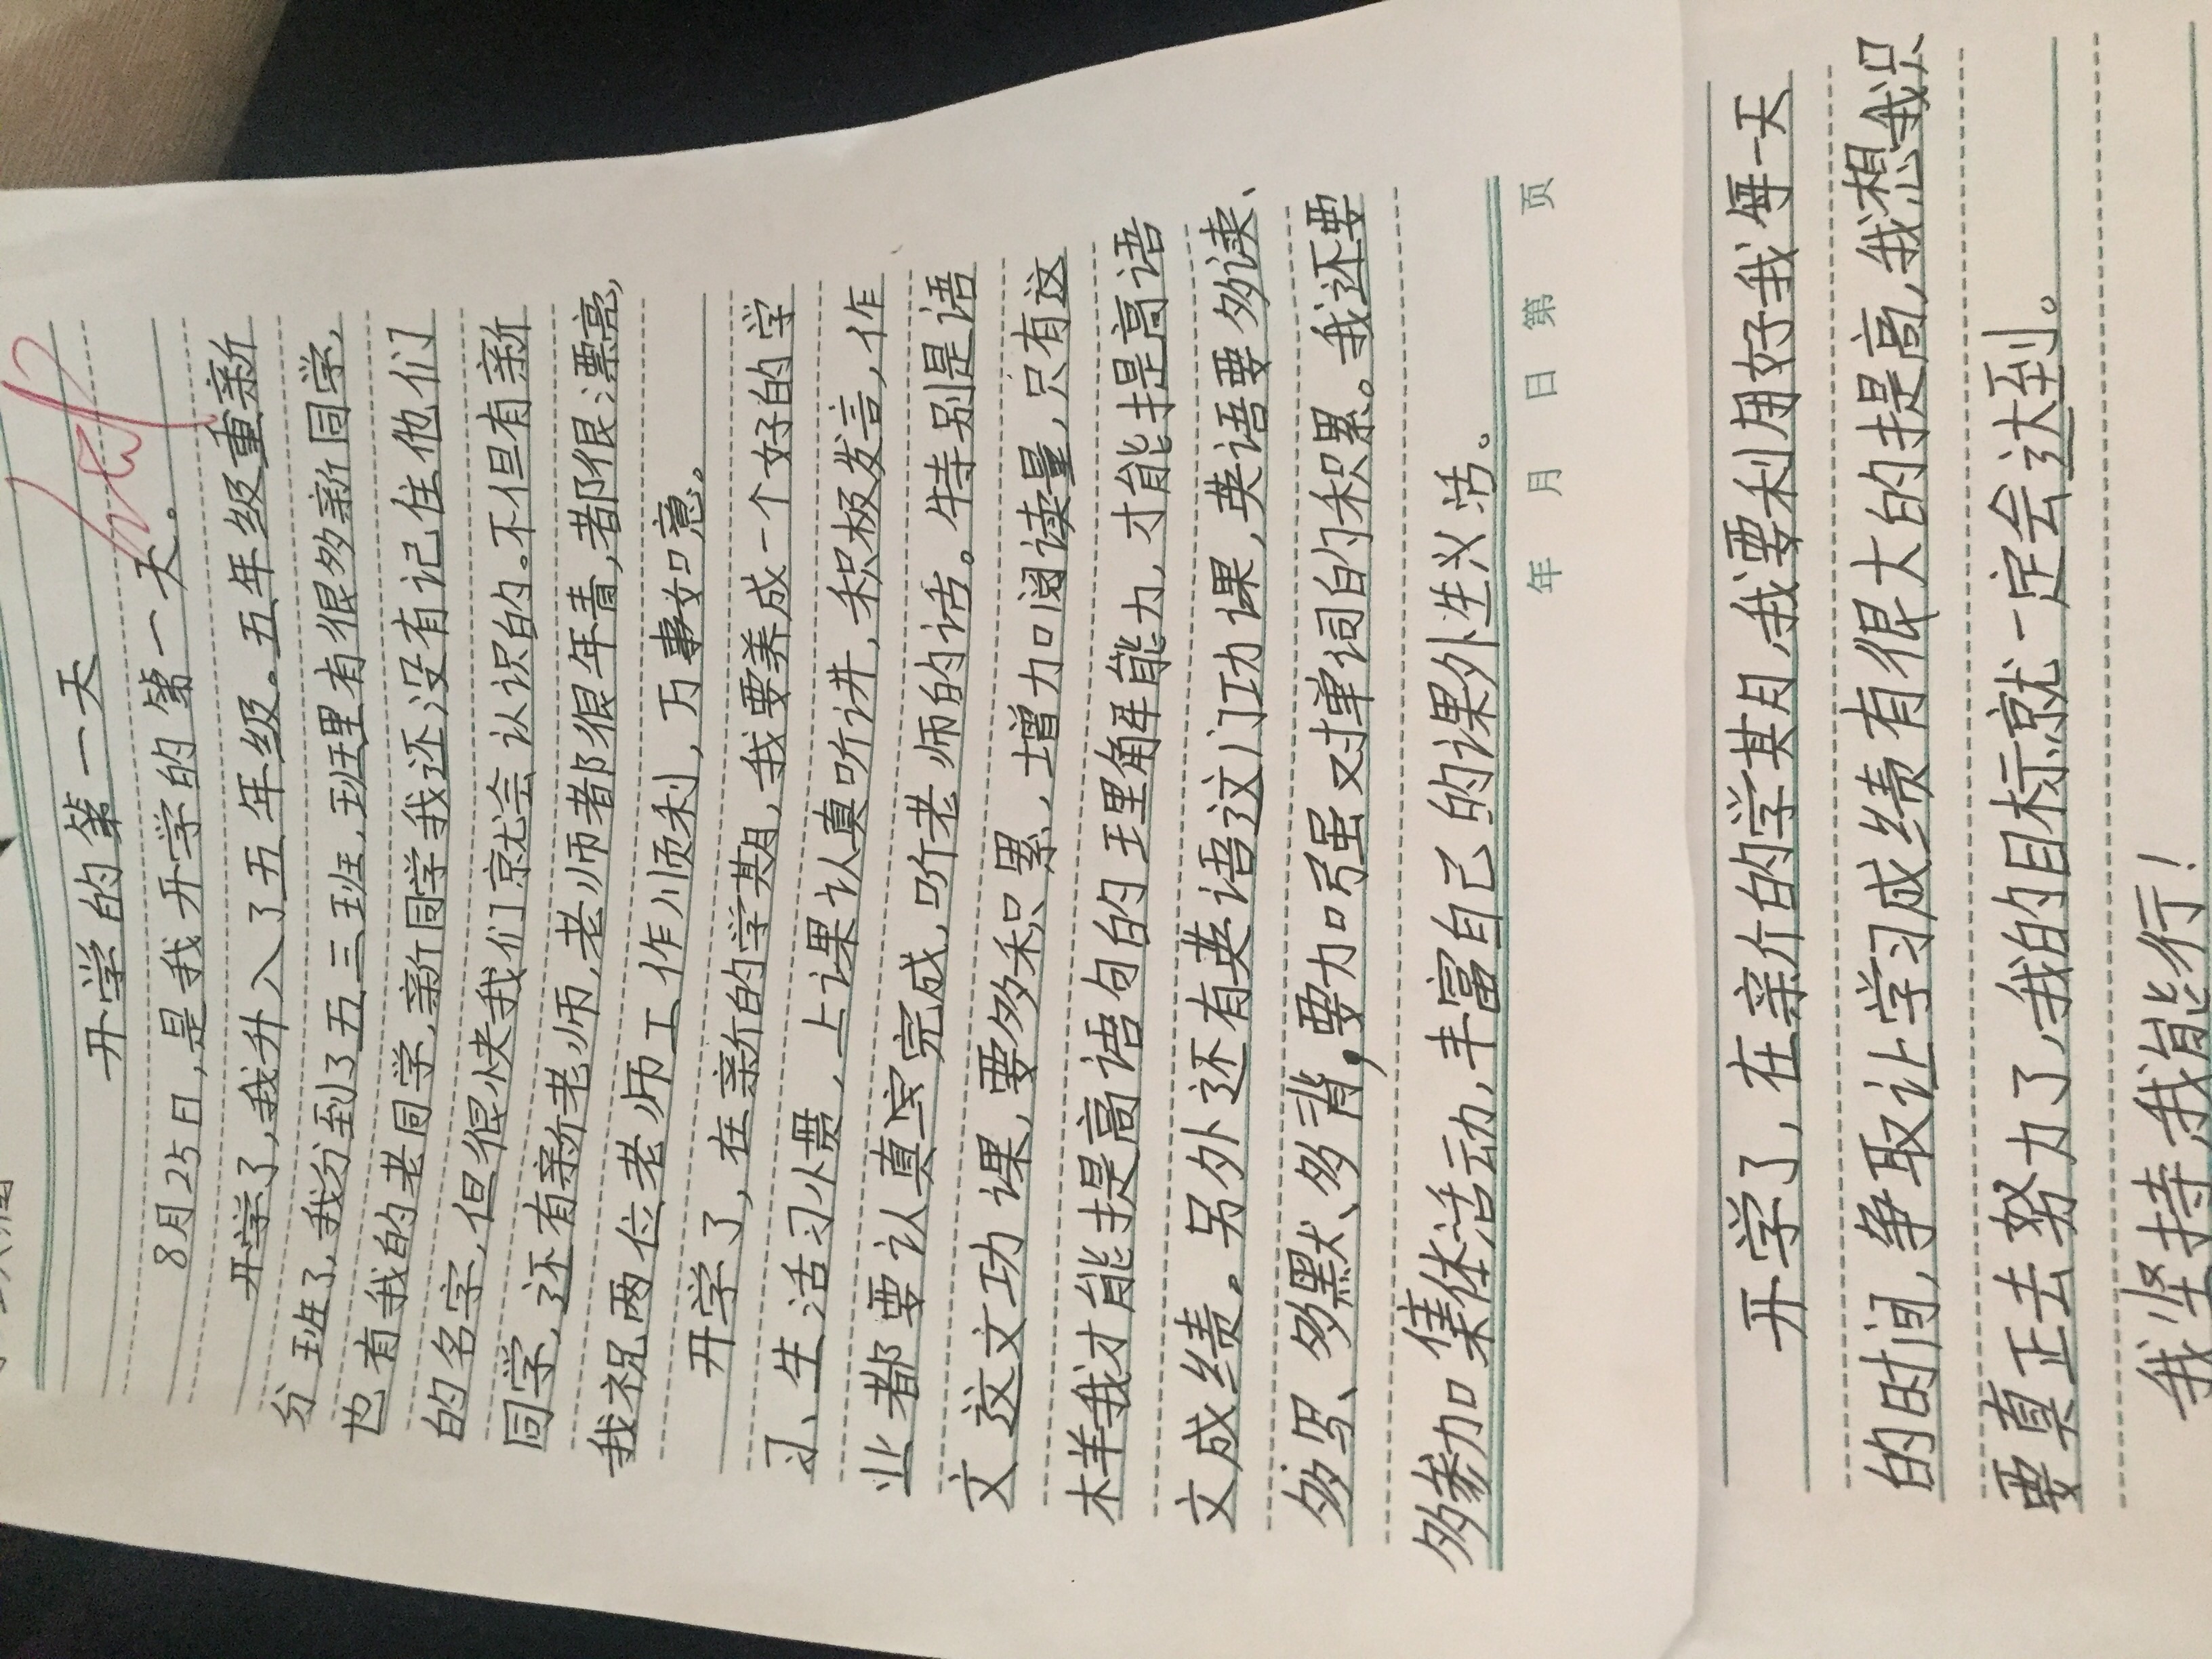 开学的第一天
8月25日,是我开学的第一天。
开学了,我升入了五年级。五年级重新
分班了,我分到了五三班,班里有很多新同学,
也有我的老同学,新同学我还没有记住他们
的名字,但很快我们就会认识的。不但有新
同学,还有新老师,老师都很年青,都很漂亮,
我祝两位老师工作顺利,万事如意。
开学了,在新的学期,我要养成一个好的学
习、生活习惯,上课认真听讲,积极发言,作
业都要认真完成,听老师的话。特别是语
文这文功课,要多积累,增加阅读量,只有这
样我才能提高语句的理解能力,才能提高语
文成绩。另外还有英语这门功课,英语要多读、
多写、多默、多背,要加强对单词的积累。我还要
多参加集体活动,丰富自己的课外生活。
年 月 日 第 页
开学了,在新的学期,我要利用好我每一天
的时间,争取让学习成绩有很大的提高,我想我只
要真正去努力了,我的目标就一定会达到。
我坚持,我能行!